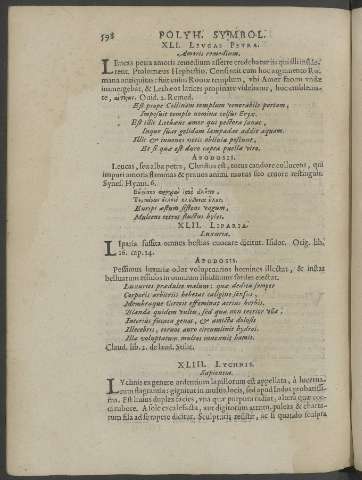 598 POLYH. SYMBOL.
XLI. LEUCAS PETRA.
Amoris remedium.
LEucas petra amoris remedium afferre credebatur iis qui ab illa
rent. Ptolemæus Hephæstio. Consentit cum hoc argumento Ro-
mana antiquitas: fuit enim Romæ templum, ubi Amor facem
immergebat, & Lethæos latices propinare videbatur, hoc
Ovid. 2. Remed.
Est prope Collinam templum venerabile portam,
Imposuit templo nomina celsus Eryx.
Est illic Lethæus amor qui pectora sanat,
Inque suas gelidam lampadas addit aquam.
Illic & iuvenes votis oblivia poscunt,
Et si qua est duro capta puella viro.
APODOSIS.
Leucas, seu alba petra, Christus est, totus candore collucens, qui
impuri amoris flammas & pravos animi motus suo cruore restinguit.
Synes. Hymn. 6.
Euripi æstum sistens vagum,
Mulcens tetros fluctus hylæs.
XLII. LIPARIA.
Luxuria.
LIparia suffita omnes bestias evocare dicitur. Isidor. Orig. lib.
16. cap. 14.
APODOSIS.
Pessimus luxuriæ odor voluptuarios homines illectat, & instar
belluarum effusos in omnium libidinum sordes eiectat.
Luxuries prædulce malum: quæ dedita semper
Corporis arbitriis hebetat caligine sensus,
Membraque Circæis effeminat acrius herbis.
Blanda quidem vultu, sed qua non tetrior ulla;
Interius fucata genas, & amicta dolosis
Illecebris, torvos auro circumlinit hydros.
Illa voluptatum multos innexuit hamis.
Claud. lib. 2. de laud. Stilic.
XLIII. LYCHNIS.
Sapientia.
LYchnis ex genere ardentium lapillorum est appellata, à lucerna-
rum flagrantia: gignitur in multis locis, sed apud Indos probatissi-
ma. Est huius duplex facies, una quæ purpura radiat, altera quæ coc-
ci rubore. A sole excalefacta, aut digitorum attritu, paleas & charta-
rum fila ad se rapere dicitur. Sculpturis resistit, ac si quando sculpta